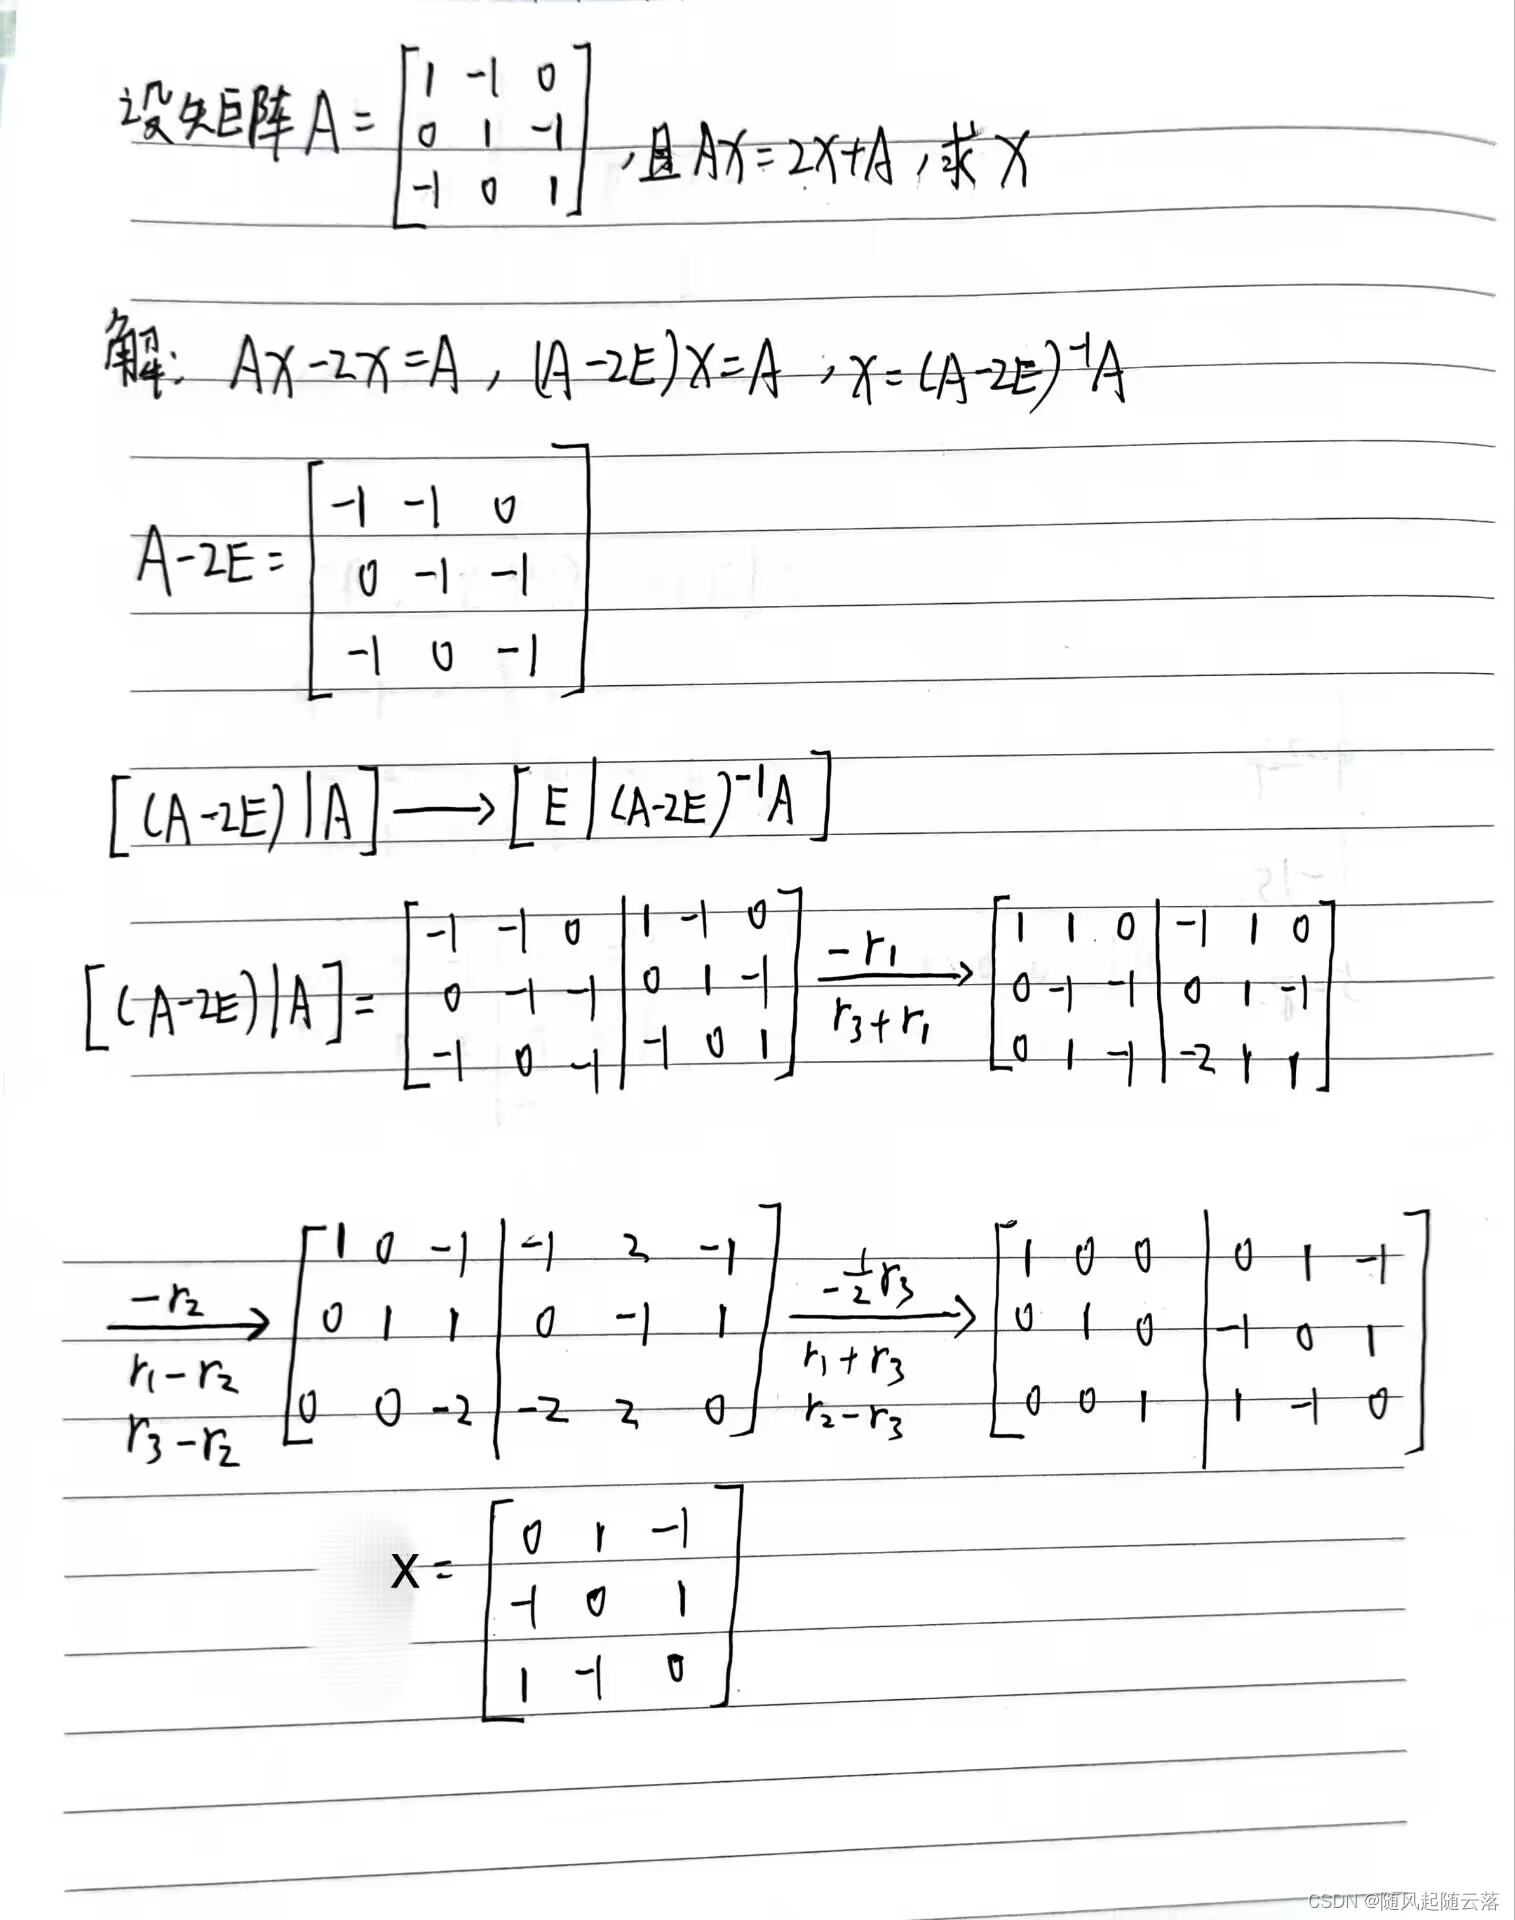 设矩阵A=[1 -1 0
0 1 -1
-1 0 1],且AX=2X+A,求X
解:AX-2X=A,(A-2E)X=A,X=(A-2E)⁻¹A
A-2E=[-1 -1 0
0 -1 -1
-1 0 -1]
[(A-2E)|A]→[E|(A-2E)⁻¹A]
[(A-2E)|A]=[-1 -1 0|1 -1 0
0 -1 -1|0 1 -1
-1 0 -1|-1 0 1]
-r₁
r₃+r₁
→[1 1 0|-1 1 0
0 -1 -1|0 1 -1
0 1 -1|-2 1 1]
-r₂
r₁-r₂
r₃-r₂
→[1 0 -1|-1 2 -1
0 1 1|0 -1 1
0 0 -2|-2 2 0]
-½r₃
r₁+r₃
r₂-r₃
→[1 0 0|0 1 -1
0 1 0|-1 0 1
0 0 1|1 -1 0]
X=[0 1 -1
-1 0 1
1 -1 0]
CSDN @随风起随云落